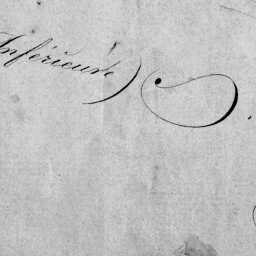 Inférieure)